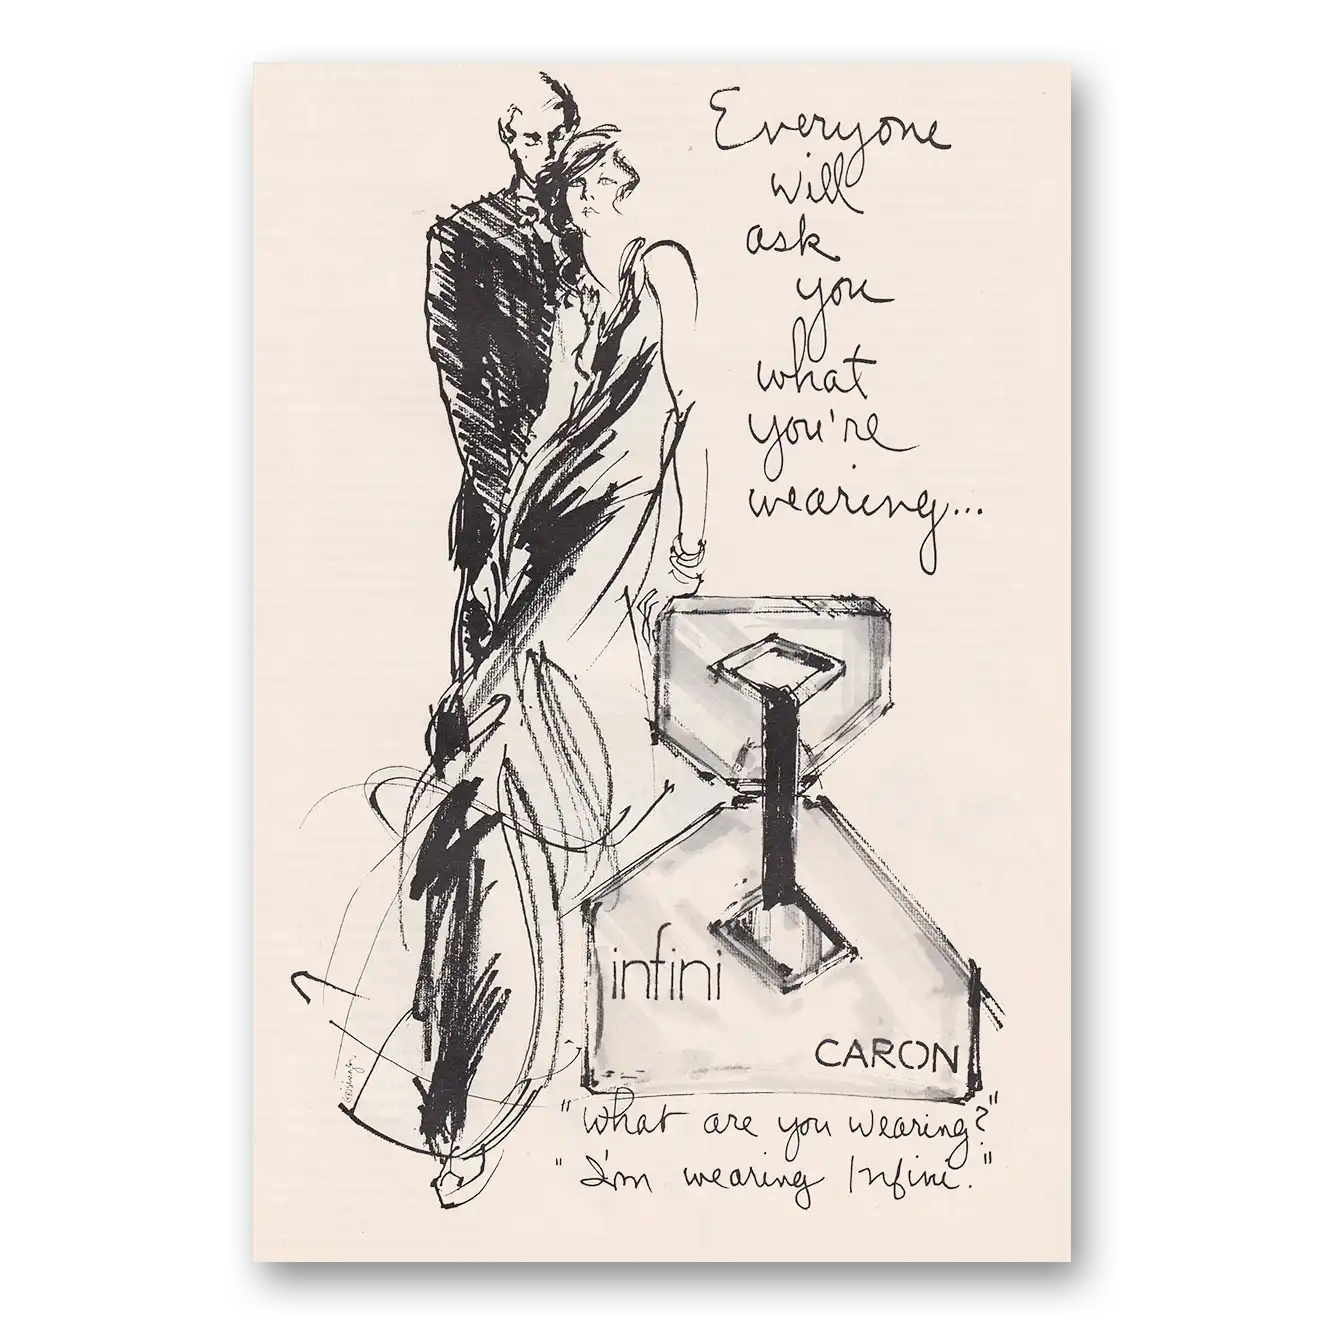 Everyone
will
ask
you
what
you're
wearing...
infini
CARON
"What are you wearing?"
"I'm wearing Infini."